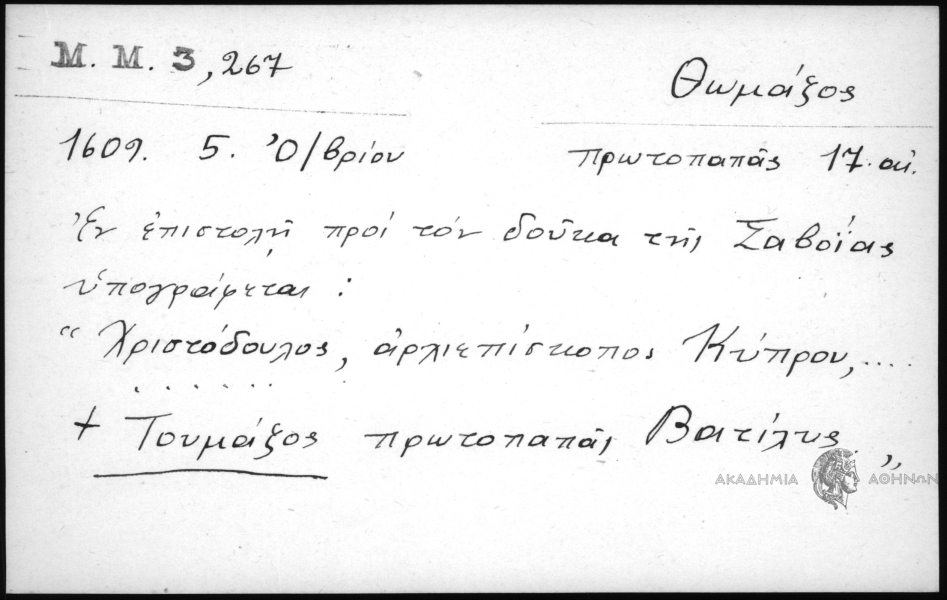 Μ. Μ. 3, 267
Θωμάξος
1609. 5. Ὀ/βρίου
πρωτοπαπᾶς 17. αἰ.
Ἐν ἐπιστολῇ πρὸς τὸν δοῦκα τῆς Σαβοΐας
ὑπογράφεται :
“ Χριστόδουλος, ἀρχιεπίσκοπος Κύπρου, ....
. . . . . . .
+ Τουμάξος πρωτοπαπᾶς Βατίλης „
ΑΚΑΔΗΜΙΑ ΑΘΗΝΩΝ